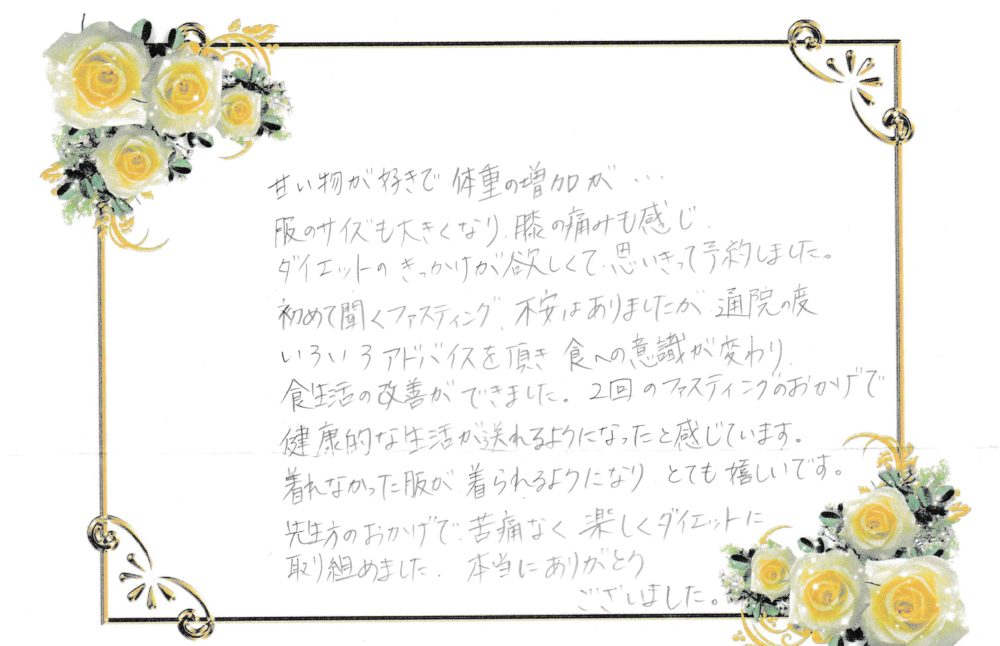 甘い物が好きで 体重の増加が…
服のサイズも大きくなり、膝の痛みも感じ、
ダイエットのきっかけが欲しくて、思いきって予約しました。
初めて聞くファスティング、不安はありましたが 通院の度
いろいろアドバイスを頂き 食への意識が変わり、
食生活の改善ができました。2回のファスティングのおかげで
健康的な生活が送れるようになったと感じています。
着れなかった服が 着られるようになり とても嬉しいです。
先生方のおかげで、苦痛なく 楽しくダイエットに
取り組めました。 本当にありがとう
ございました。